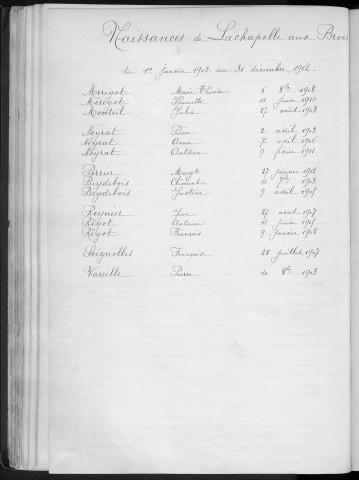 Naissances de Lachapelle aux Broc
du 1er janvier 1903 au 31 décembre 1912.
Mérigot Marie 6 8bre 1908
Mérigot Henriette 11 juin 1910
Monteil Julia 27 août 1903
Neyrat Pierre 2 avril 1903
Neyrat Anna 7 avril
Neyrat Antoine 9 1911
Perrier 27 janvier 1912
Puydebois Clément 7bre 1903
Puydebois Justine 9 avril 1905
Reynier 27 août 1907
Rigot juin
Rigot François 9 janvier 1908
Seignolles 28 juillet 1907
Vareille Pierre 10 8bre 1903